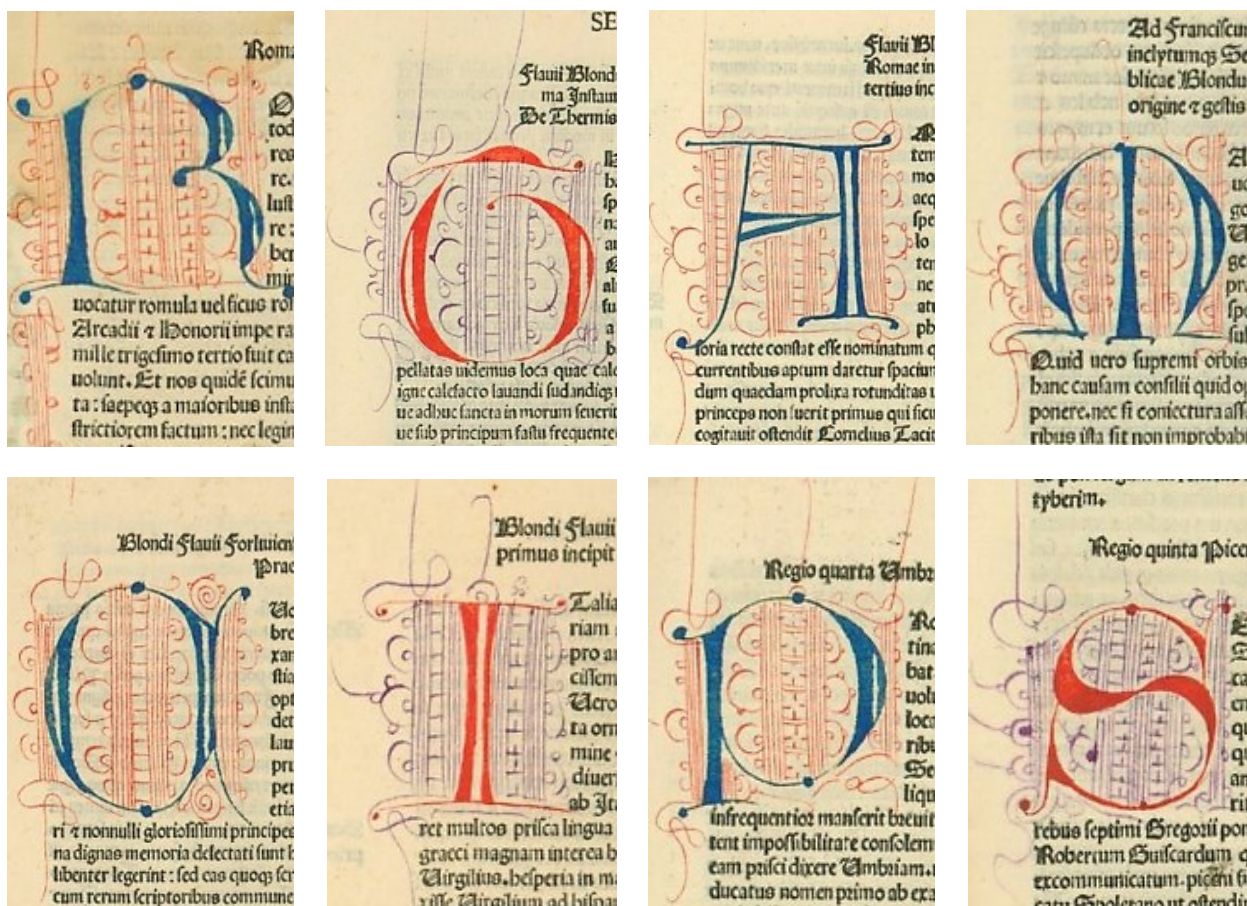 Roma
R
tod
res
re.
lust
re:
ber
min
uocatur romula uel ficus ro
Arcadii ⁊ Honorii impe ra
mille trigesimo tertio fuit ca
uolunt. Et nos quidē scimu
ta: saepeqȝ a maioribus insta
strictiorem factum: nec legin
SE
Flauii Blond
ma Instau
De Thermis
pellatas uidemus loca quae cale
igne calefacto lauandi sudandiqȝ
ue adhuc sancta in morum seuerit
ue sub principum fastu frequente
Flauii Bl
Romae in
tertius inc
A
tem
mo
acq
spe
lo
ten
ne
atu
ph
soria recte constat esse nominatum q
currentibus aptum daretur spacium
dum quaedam prolixa rotunditas u
princeps non fuerit primus qui ficu
cogitauit ostendit Cornelius Tacit
Ad Franciscum
inclytumqȝ Se
blicae Blondu
origine ⁊ gestis
Quid uero supremi orbis
hanc causam consilii quid op
ponere. nec si coniectura ass
ribus ista sit non improbabi
Blondi Flauii Forliuien
Prae
Ue
bre
xan
stia
opt
det
lau
pru
per
etia
ri ⁊ nonnulli gloriosissimi principes
na dignas memoria delectati sunt h
libenter legerint: sed eas quoqȝ scr
cum rerum scriptoribus commune
Blondi Flauii
primus incipit
I
Talia
riam
pro an
cissem
Uero
ta orn
mine
diuer
ab Ita
ret multos prisca lingua
graeci magnam interea b
Uirgilius. hesperia in ma
xisse Uirgilium ad hispan
Regio quarta Umbr
P
Ro
tina
bat
uolu
loca
ribu
Se
liqu
infrequentior manserit breuit
tent impossibilitate consolem
eam prisci dixere Umbriam.
ducatus nomen primo ab exa
tyberim.
Regio quinta Picen
S
rebus septimi Gregorii pon
Robertum Guiscardum q
excommunicatum. piceni fi
catu Spoletano ut ostendim